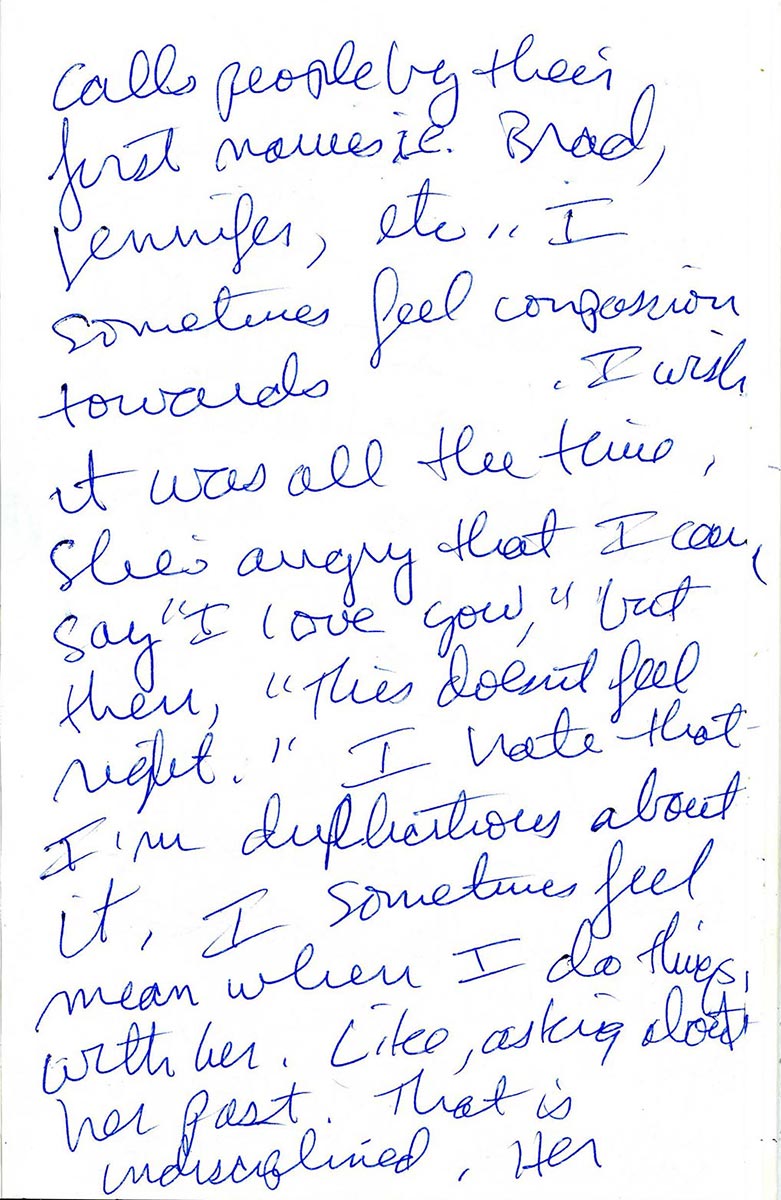 calls people by their
first names ie. Brad,
Jennifer, etc.. I
sometimes feel compassion
towards . I wish
it was all the time,
She's angry that I can,
say "I love you," but
then, "This doesn't feel
right." I hate that
I'm duplicitous about
it, I sometimes feel
mean when I do things,
with her. Like, asking about
her past. That is
undisciplined. Her